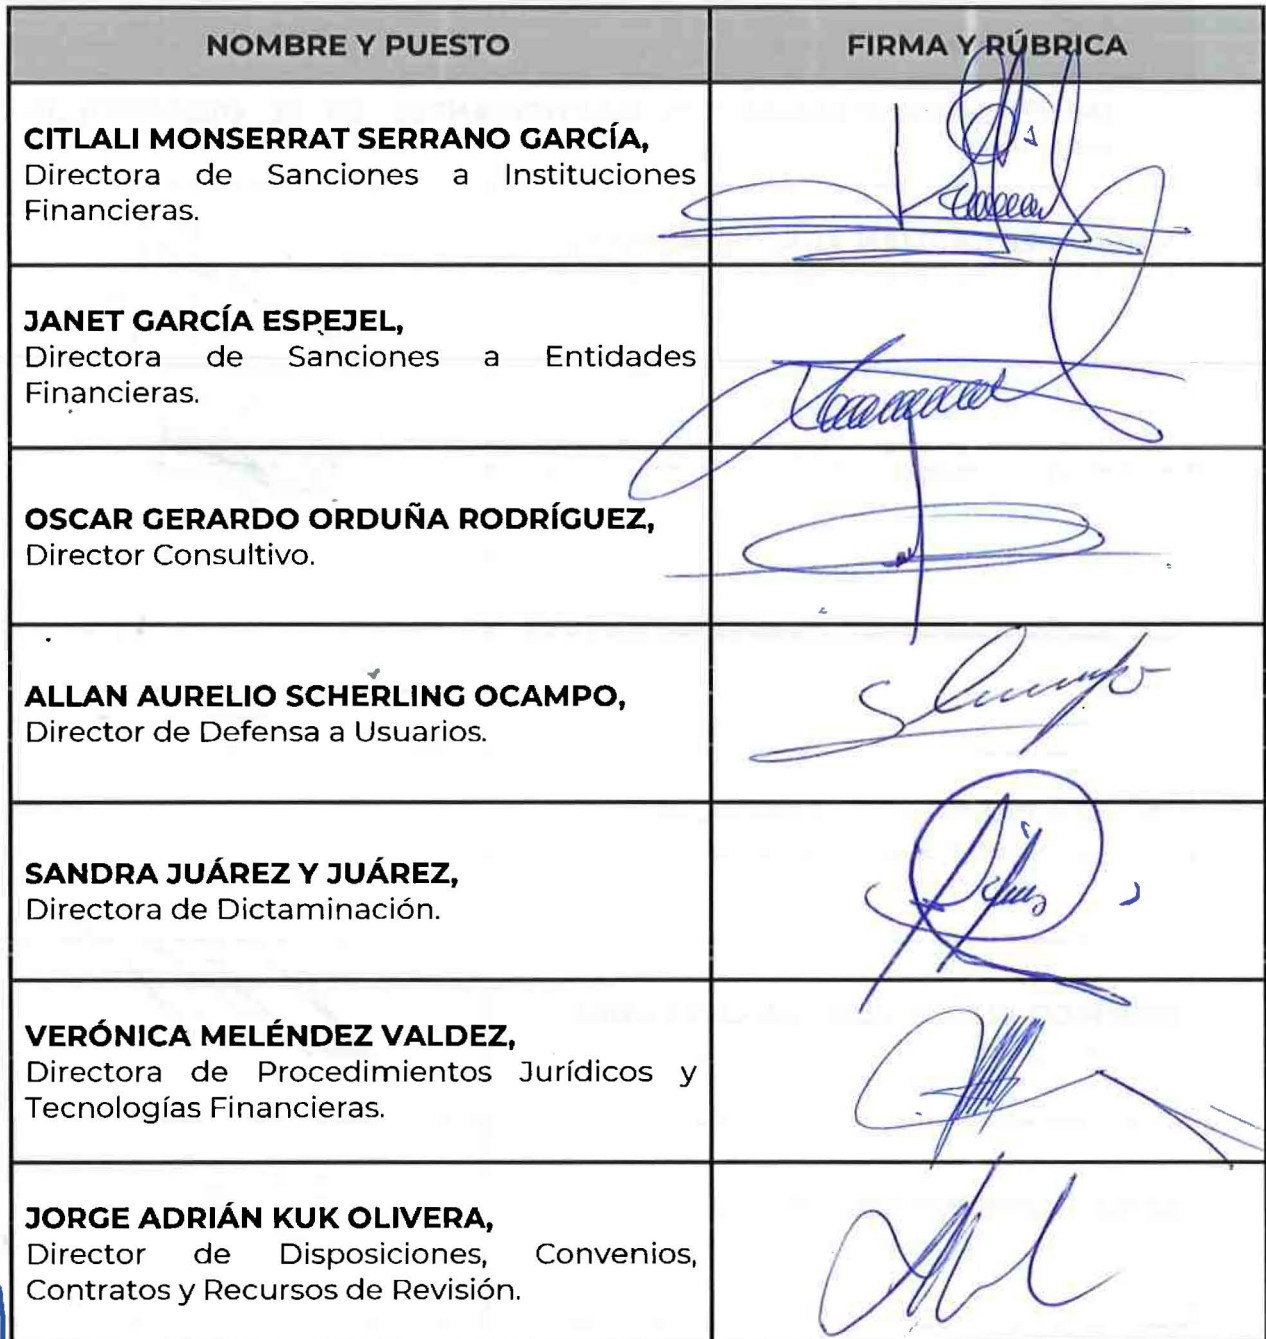 NOMBRE Y PUESTO
FIRMA Y RÚBRICA
CITLALI MONSERRAT SERRANO GARCÍA,
Directora de Sanciones a Instituciones
Financieras.
JANET GARCÍA ESPEJEL,
Directora de Sanciones a Entidades
Financieras.
OSCAR GERARDO ORDUÑA RODRÍGUEZ,
Director Consultivo.
ALLAN AURELIO SCHERLING OCAMPO,
Director de Defensa a Usuarios.
SANDRA JUÁREZ Y JUÁREZ,
Directora de Dictaminación.
VERÓNICA MELÉNDEZ VALDEZ,
Directora de Procedimientos Jurídicos y
Tecnologías Financieras.
JORGE ADRIÁN KUK OLIVERA,
Director de Disposiciones, Convenios,
Contratos y Recursos de Revisión.